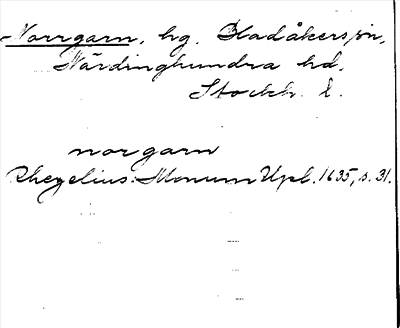 Norrgarn, hg. Bladåkers sn,
Närdinghundra hd,
Stockh. l.
norgarn
Rhezelius: Monum Upl. 1635, s. 31.